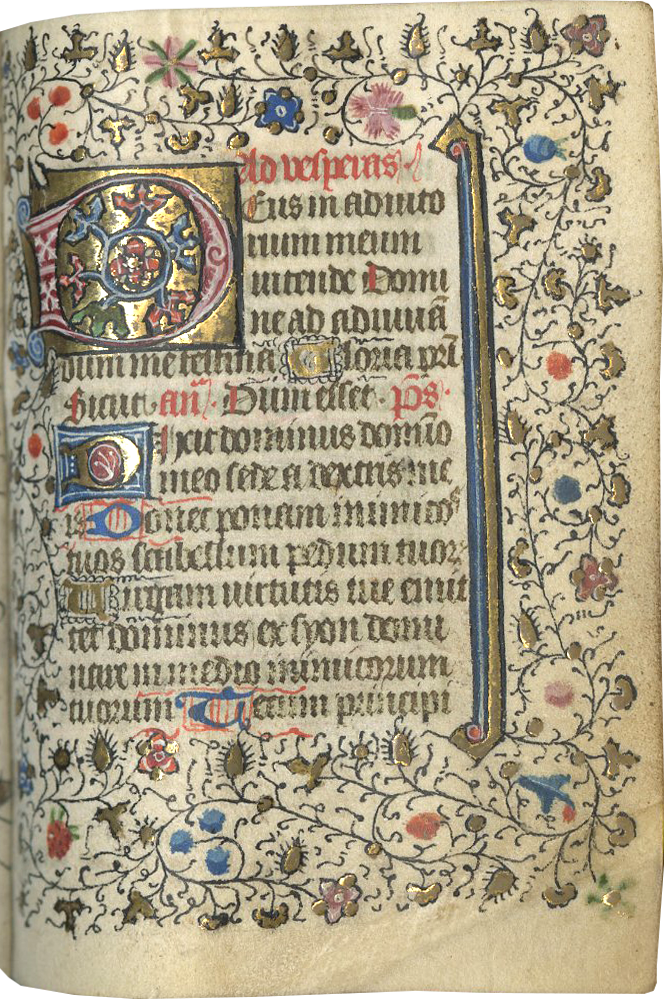 Ad vesperas.
Deus in adiuto
rium meum
intende Domi
ne ad adiuuā
dum me festina Gloria pr̄i
Sicut. an̄. Dum esset. p̄s.
Dixit dominus domīo
meo sede a dextris me
is Donec ponam inimicos
tuos scabellum pedum tuor
Virgam virtutis tue emit
tet dominus ex syon domi
nare in medio inimicorum
tuorum Tecum principi